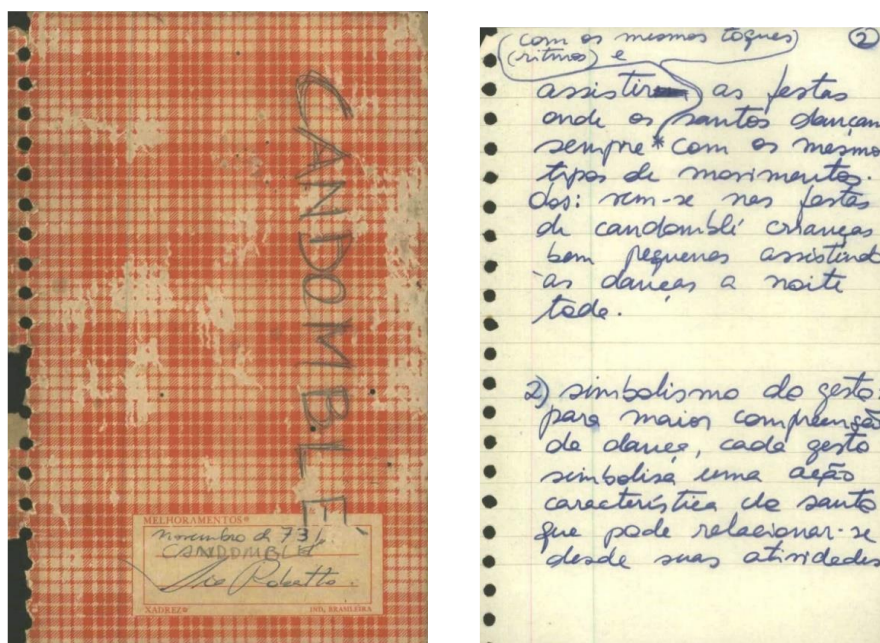 CANDOMBLE
MELHORAMENTOS®
novembro de 73
CANDOMBLÉ
Lia Robatto.
XADREZ®
IND. BRASILEIRA
(com os mesmos toques) 2
(ritmos) e
assistir as festas
onde os santos dançam
sempre * com os mesmo
tipos de movimentos.
Obs: vem-se nas festas
de candomblé crianças
bem pequenas assistindo
às danças a noite
toda.
2) simbolismo do gesto:
para maior compreensão
da dança, cada gesto
simbolisa uma ação
característica do santo
que pode relacionar-se
desde suas atividades